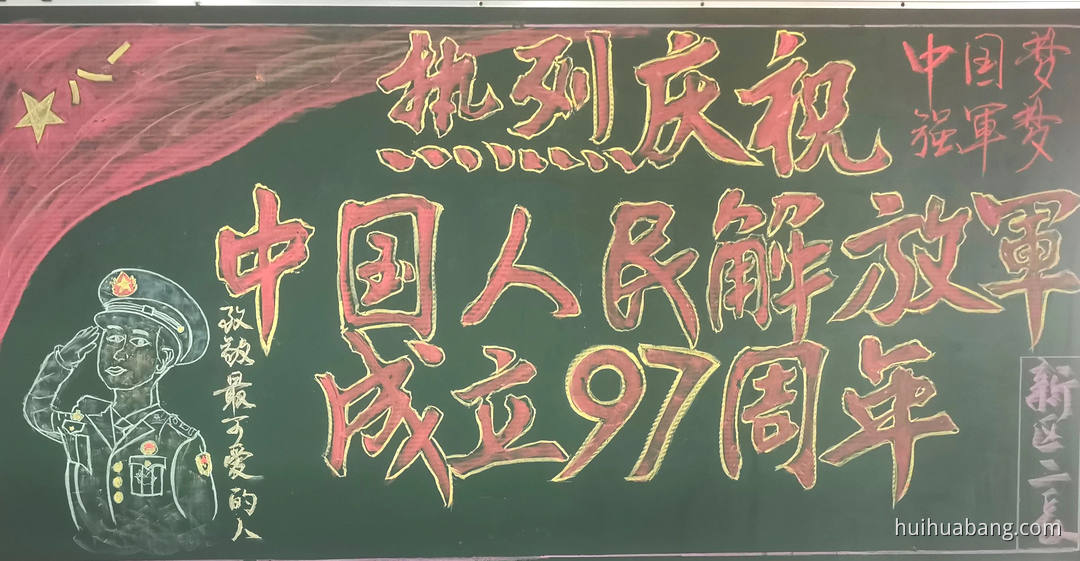 热烈庆祝
中国梦
强軍梦
中国人民解放軍
成立97周年
致敬最可爱的人
新区二长
huihuabang.com